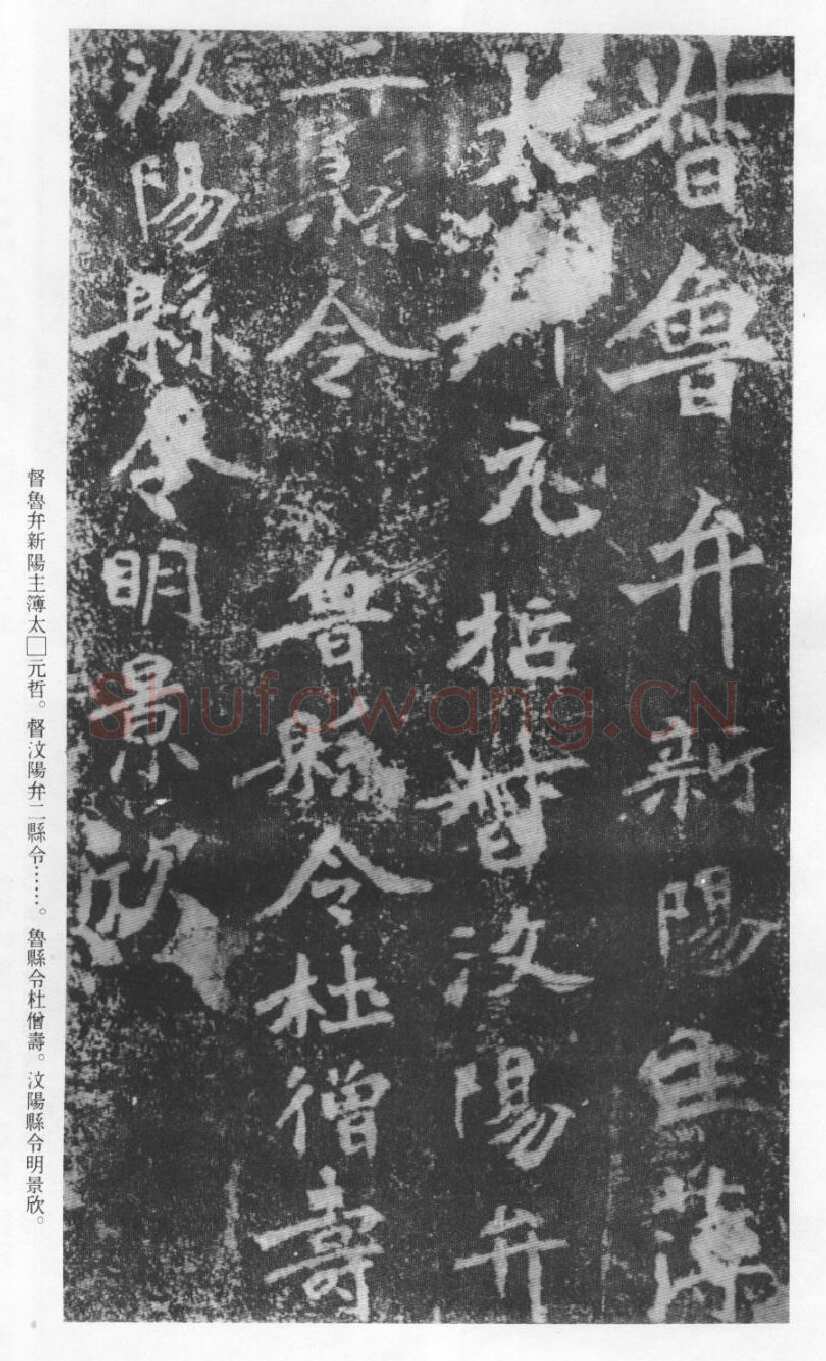 督魯弁新陽主簿
太□元哲督汶陽弁
二縣令 魯縣令杜僧壽
汶陽縣令明景欣
督魯弁新陽主簿太□元哲。督汶陽弁二縣令……。魯縣令杜僧壽。汶陽縣令明景欣。
Shufawang.CN